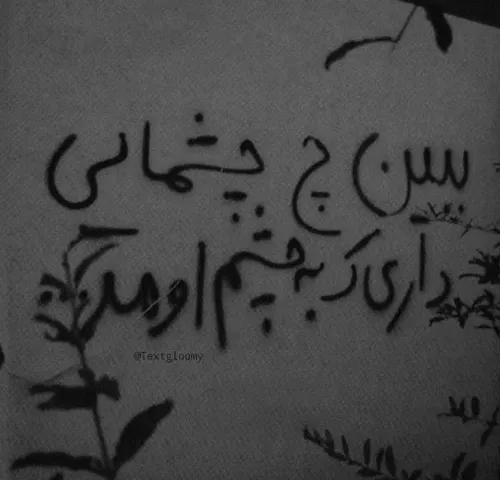 ببین چ چشمانی
داری ک به چشم اومد
@Textgloomy